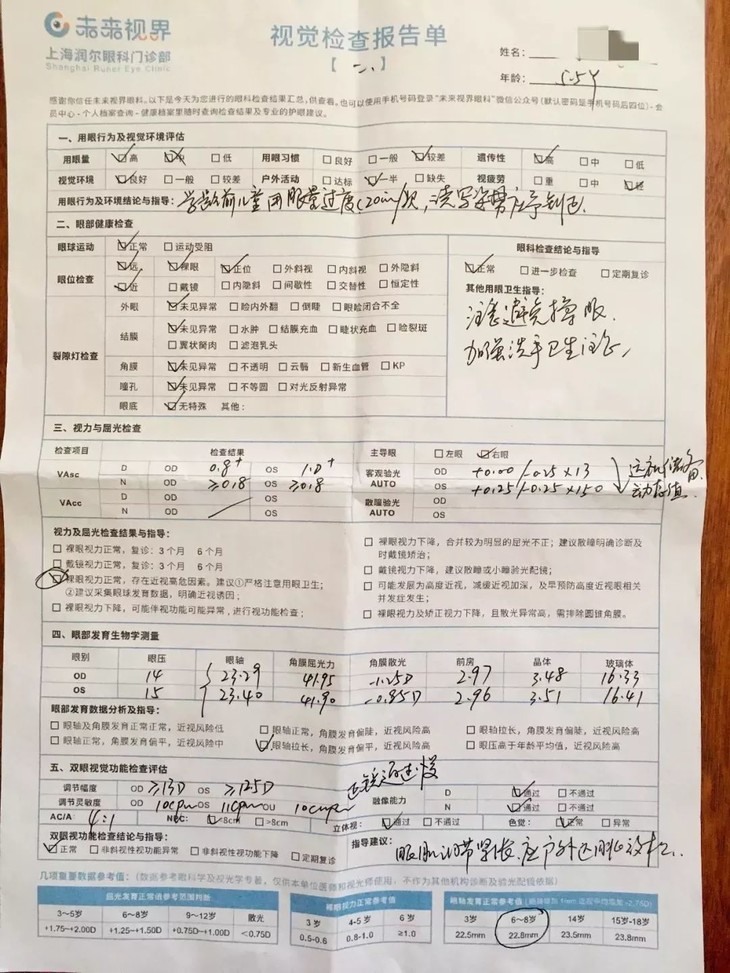 未来视界
上海润尔眼科门诊部
Shanghai Runer Eye Clinic
视觉检查报告单
【 二、 】
姓名：
年龄： 5.5Y
感谢你信任未来视界眼科。以下是今天为您进行的眼科检查结果汇总，供查看。也可以使用手机号码登录“未来视界眼科”微信公众号（默认密码是手机号码后四位）-会
员中心-个人档案查询-健康档案里随时查询检查结果及专业的护眼建议。
一、用眼行为及视觉环境评估
用眼量 高 中 低 用眼习惯 良好 一般 较差 遗传性 高 中 低
视觉环境 良好 一般 较差 户外活动 达标 一半 缺失 视疲劳 重 中 轻
用眼行为及环境结论与指导：学龄前儿童用眼量过度（20min/次，读写姿势应予纠正.
二、眼部健康检查
眼球运动 正常 运动受阻
眼位检查 远 裸眼 正位 外斜视 内斜视 外隐斜
近 戴镜 内隐斜 间歇性 交替性 恒定性
裂隙灯检查
外眼 未见异常 睑内外翻 倒睫 眼睑闭合不全
结膜 未见异常 水肿 结膜充血 睫状充血 睑裂斑
翼状胬肉 滤泡乳头
角膜 未见异常 不透明 云翳 新生血管 KP
瞳孔 未见异常 不等圆 对光反射异常
眼底 无特殊 其他：
眼科检查结论与指导
正常 进一步检查 定期复诊
其他用眼卫生指导：
注意避免揉眼.
加强洗手卫生
三、视力与屈光检查
检查项目 检查结果
VAsc D OD 0.8+ OS 1.0+
N OD ≥0.8 OS ≥0.8
VAcc D OD OS
N OD OS
主导眼 左眼 右眼
客观验光 OD +0.00 /-0.25×13
AUTO OS +0.25/-0.25×150
远视储备
散瞳验光 OD
AUTO OS
视力及屈光检查结果与指导：
裸眼视力正常，复诊：3个月 6个月
戴镜视力正常，复诊：3个月 6个月
裸眼视力正常，存在近视高危因素。建议①严格注意用眼卫生；
②建议采集眼球发育数据，明确近视诱因；
裸眼视力下降，可能伴视功能可能异常，进行视功能检查；
裸眼视力下降，合并较为明显的屈光不正；建议散瞳明确诊断及
时戴镜矫治；
戴镜视力下降，建议散瞳或小瞳验光配镜；
可能发展为高度近视，减缓近视加深，及早预防高度近视眼相关
并发症发生；
裸眼视力及矫正视力下降，且散光异常高，需排除圆锥角膜。
四、眼部发育生物学测量
眼别 眼压 眼轴 角膜屈光力 角膜散光 前房 晶体 玻璃体
OD 14 23.29 41.95 -1.25D 2.97 3.48 16.33
OS 15 23.40 41.90 -0.85D 2.96 3.51 16.41
眼部发育数据分析及指导：
眼轴及角膜发育正常正常，近视风险低 眼轴正常，角膜发育偏陡，近视风险高 眼轴拉长，角膜发育偏陡，近视风险高
眼轴正常，角膜发育偏平，近视风险中 眼轴拉长，角膜发育偏平，近视风险高 眼压高于年龄平均值，近视风险高
五、双眼视觉功能检查评估
正镜通过慢
调节幅度 OD ≥13D OS ≥12.5D
调节灵敏度 OD 10cpm OS 11cpm OU 10cpm
融像能力 D 通过 不通过
N 通过 不通过
AC/A 4:1 NPC: <8cm >8cm 立体视： 通过 不通过 色觉： 正常 异常
双眼视功能检查结论与指导：
正常 非斜视性视功能异常 非斜视性视功能下降 定期复诊
指导建议： 眼肌调节紧张
几项重要数据参考值：（数据参考眼科学及视光学专著，仅供本单位医师和视光师使用，不作为其他机构诊断及验光配镜依据）
屈光发育正常值参考范围判断
3～5岁 6～8岁 9～12岁 散光
+1.75~+2.00D +1.25~+1.50D +0.75D~+1.00D <0.75D
裸眼视力正常参考值
3岁 4-5岁 6岁
0.5-0.6 0.8-1.0 ≥1.0
眼轴发育正常参考值
3岁 6～8岁 14岁 15岁-18岁
22.5mm 22.8mm 23.5mm 23.8mm